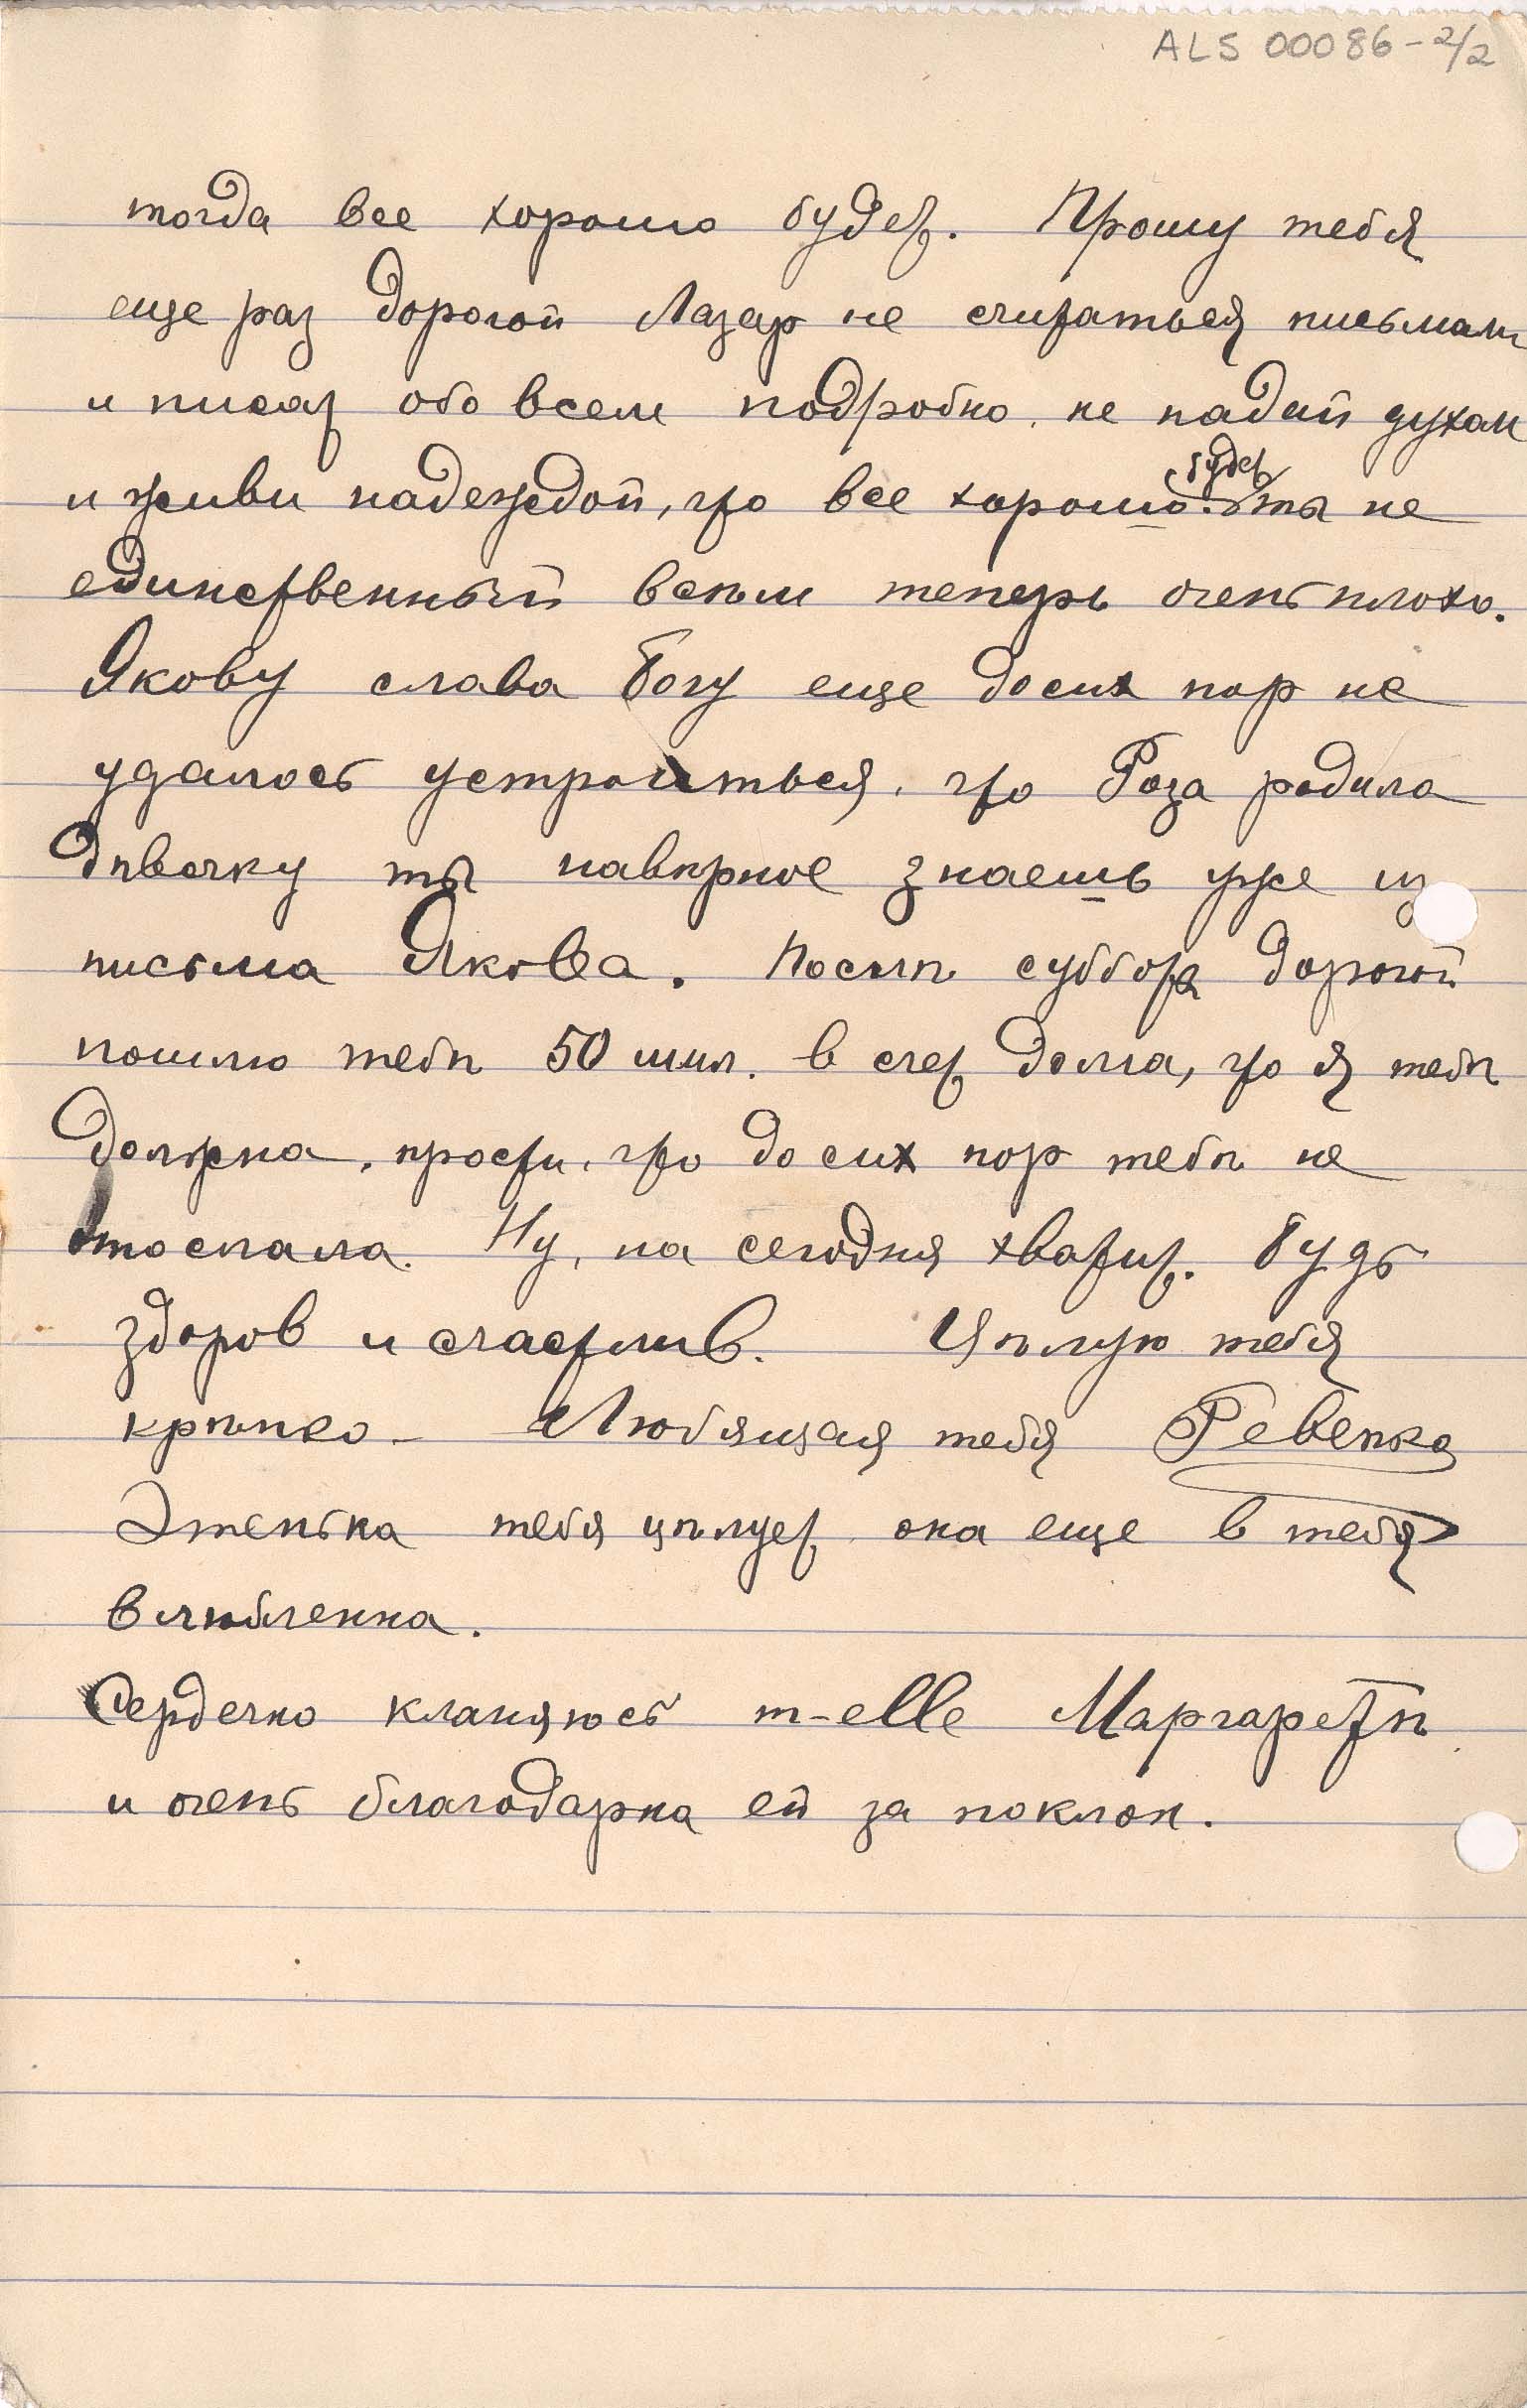 ALS 00086-2/2
тогда все хорошо будет. Прошу тебя
еще раз дорогой Лазар не считаться письмами
и писат обо всем подробно, не падай духом
и живи надеждой, что все хорошо будет. ты не
единственный всѣм теперь очень плохо.
Якову слава Богу еще до сих пор не
удалось устроиться, что Роза родила
дѣвочку ты навѣрное знаешь уже из
письма Якова. Послѣ суббота дорогой
пошлю тебѣ 50 шил. в счет долга, что я тебѣ
должна, прости, что до сих пор тебѣ не
отослала. Ну, на сегодня хватит. Будь
здоров и счастлив. Цѣлую тебя
крѣпко - Любящая тебя Ревекка
Этенька тебя цѣлует, она еще в тебя
влюбленна.
Сердечно кланяюсь m-elle Маргаретѣ
и очень благодарна ей за поклон.